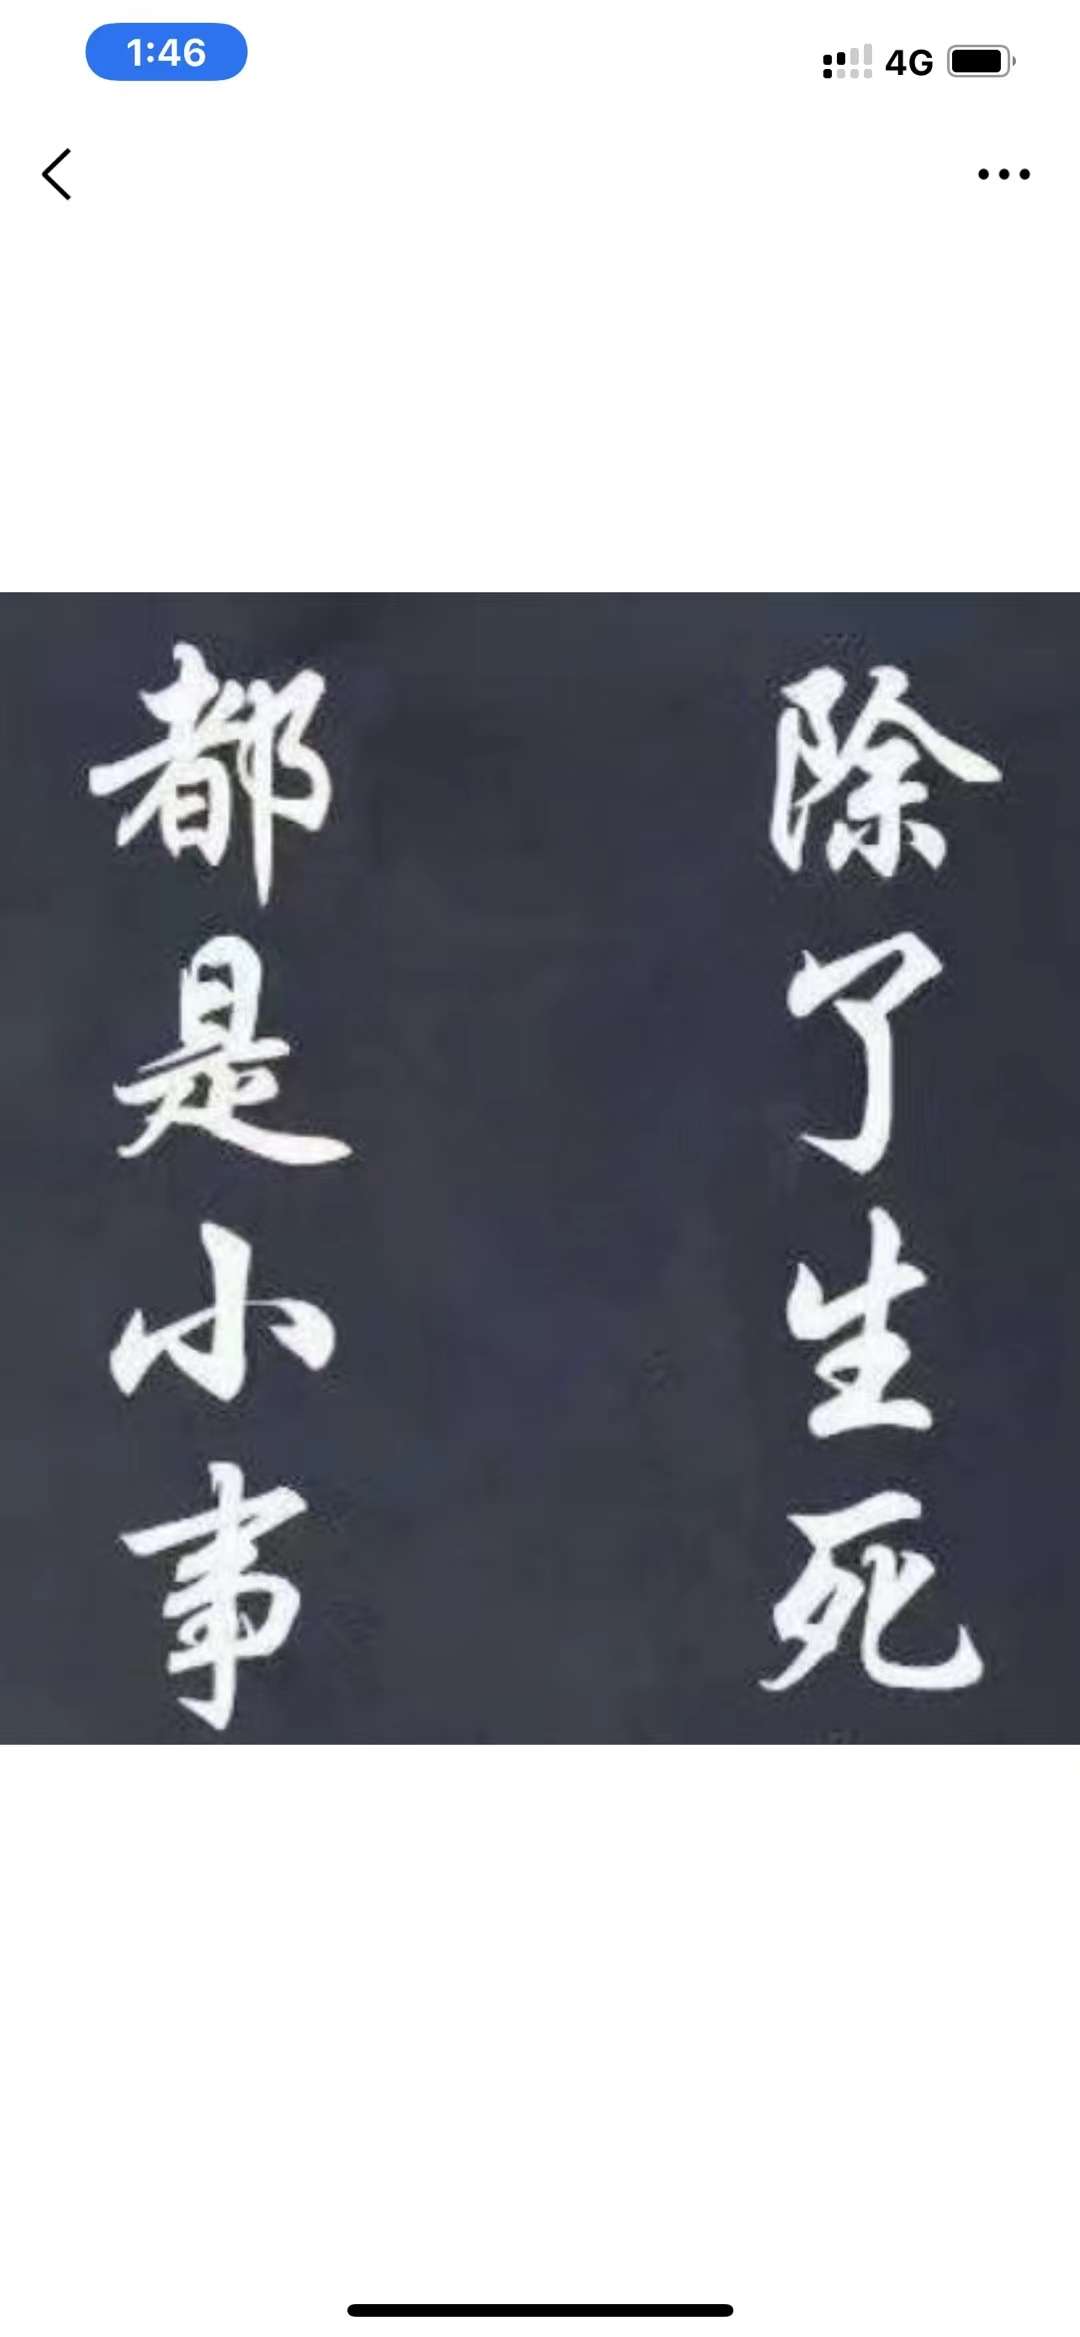 1:46
4G
除了生死
都是小事